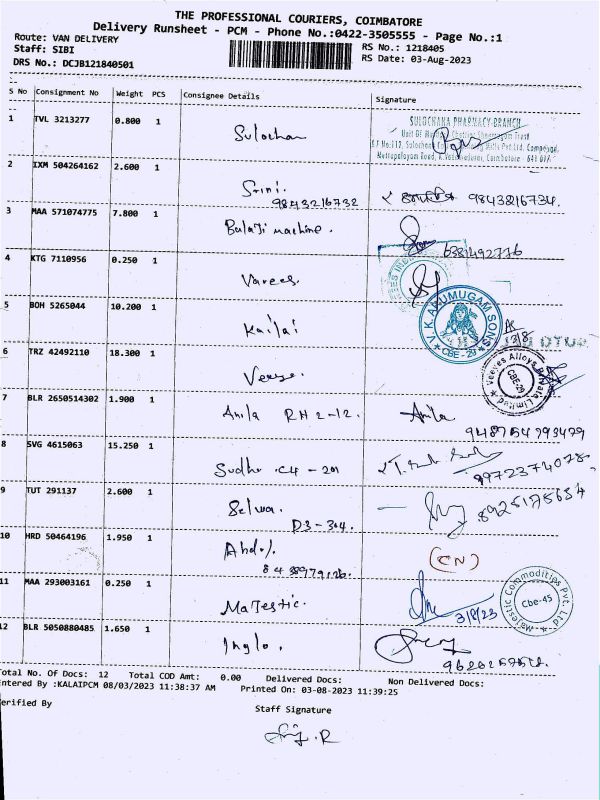 THE PROFESSIONAL COURIERS, COIMBATORE
Delivery Runsheet - PCM - Phone No.:0422-3505555 - Page No.:1
Route: VAN DELIVERY
Staff: SIBI
RS No.: 1218405
DRS No.: DCJB121840501
RS Date: 03-Aug-2023
S No Consignment No Weight PCS Consignee Details Signature
1 TVL 3213277 0.800 1 Sulochan
SULOCHANA PHARMACY BRANCH
2 IXM 504264162 2.600 1 Srini.
9843216732 9843216734.
3 MAA 571074775 7.800 1 Balaji machine.
6381492776
4 KTG 7110956 0.250 1 Varees.
5 BOH 5265044 10.200 1 Kailai
V.K. ARUMUGAM SONS
CBE-29
6 TRZ 42492110 18.300 1
Veeyes Alloys Private Limited
CBE-29
7 BLR 2650514302 1.900 1 Anila RH2-12. Anila
9487154793479
8 SVG 4615063 15.250 1 Sudha C4-201
9972374078
9 TUT 291137 2.600 1 Selwa.
D3-304. 8925175654
10 HRD 50464196 1.950 1 Abdul.
(CN)
11 MAA 293003161 0.250 1 Majestic.
3/8/23
Majestic Commodities Pvt. Ltd.
Cbe-45
12 BLR 5050880485 1.650 1 Inglo.
Total No. Of Docs: 12 Total COD Amt: 0.00 Delivered Docs: Non Delivered Docs:
Entered By :KALAIPCM 08/03/2023 11:38:37 AM Printed On: 03-08-2023 11:39:25
Verified By Staff Signature